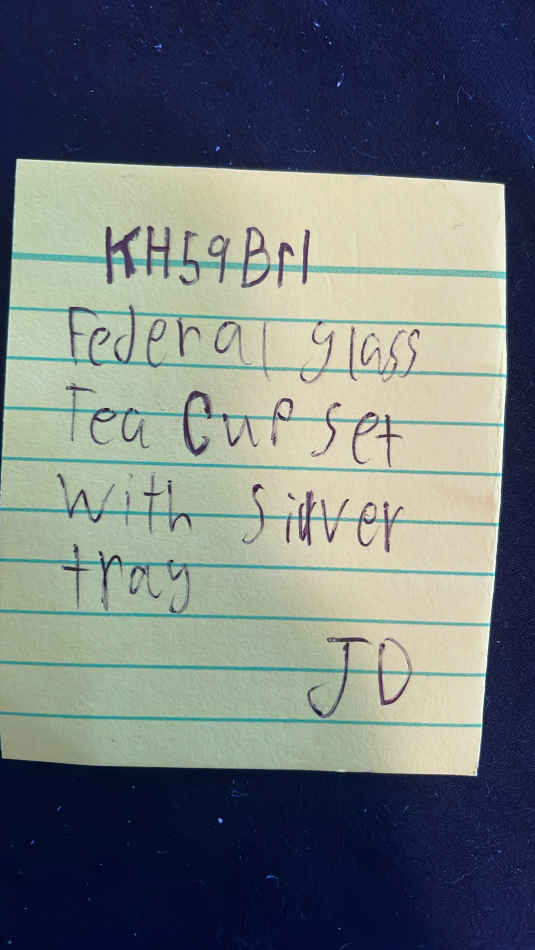 KH59BrI
Federal glass
Tea Cup set
With Silver
tray
JD